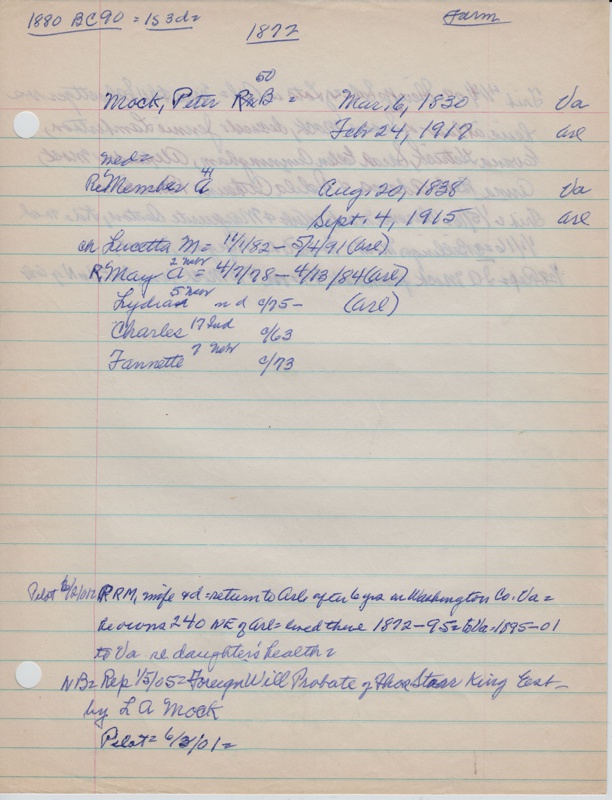 1880 BC90 = 1S 3d =
Farm
1872
50
Mock, Peter R B = Mar. 6, 1830 Va
Feb 24, 1917 arl
med =
41
Re Member A Aug. 20, 1838 Va
Sept. 4, 1915 arl
ch Lucetta M = 11/1/82 - 5/4/91 (arl)
R May A 2 nebr = 4/7/78 - 4/13/84 (arl)
Lydia 5 nebr nd c/75 - (arl)
Charles 17 Ind c/63
Fannette 7 nebr c/73
Pilot 6/2/01 = PRM, wife & d = return to Arl after 6 yrs in Washington Co. Va =
he owns 240 NE of arl = lived there 1872-95 = to Va = 1895-01
to Va re daughter's health =
NB = Rep 1/5/05 = Foreign Will Probate of Thos Starr King Est -
by L A Mock
Pilot = 6/3/01 =